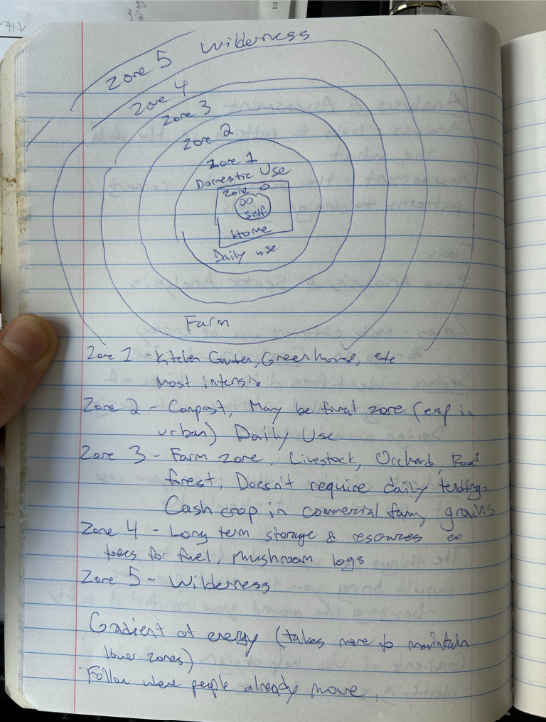 Zone 5 Wilderness
Zone 4
Zone 3
Zone 2
Zone 1
Domestic Use
Zone 0
00
Self
Home
Daily use
Farm
Zone 1 - Kitchen Garden, Greenhouse, etc
most intensive
Zone 2 - Compost, May be final zone (esp in
urban) Daily Use
Zone 3 - Farm zone, Livestock, Orchards, Food
forest, Doesn't require daily tending.
Cash crop in commercial farm, grains
Zone 4 - Long term storage & resources
trees for fuel, mushroom logs
Zone 5 - Wilderness
Gradient of energy (takes more to maintain
lower zones)
Follow where people already move.